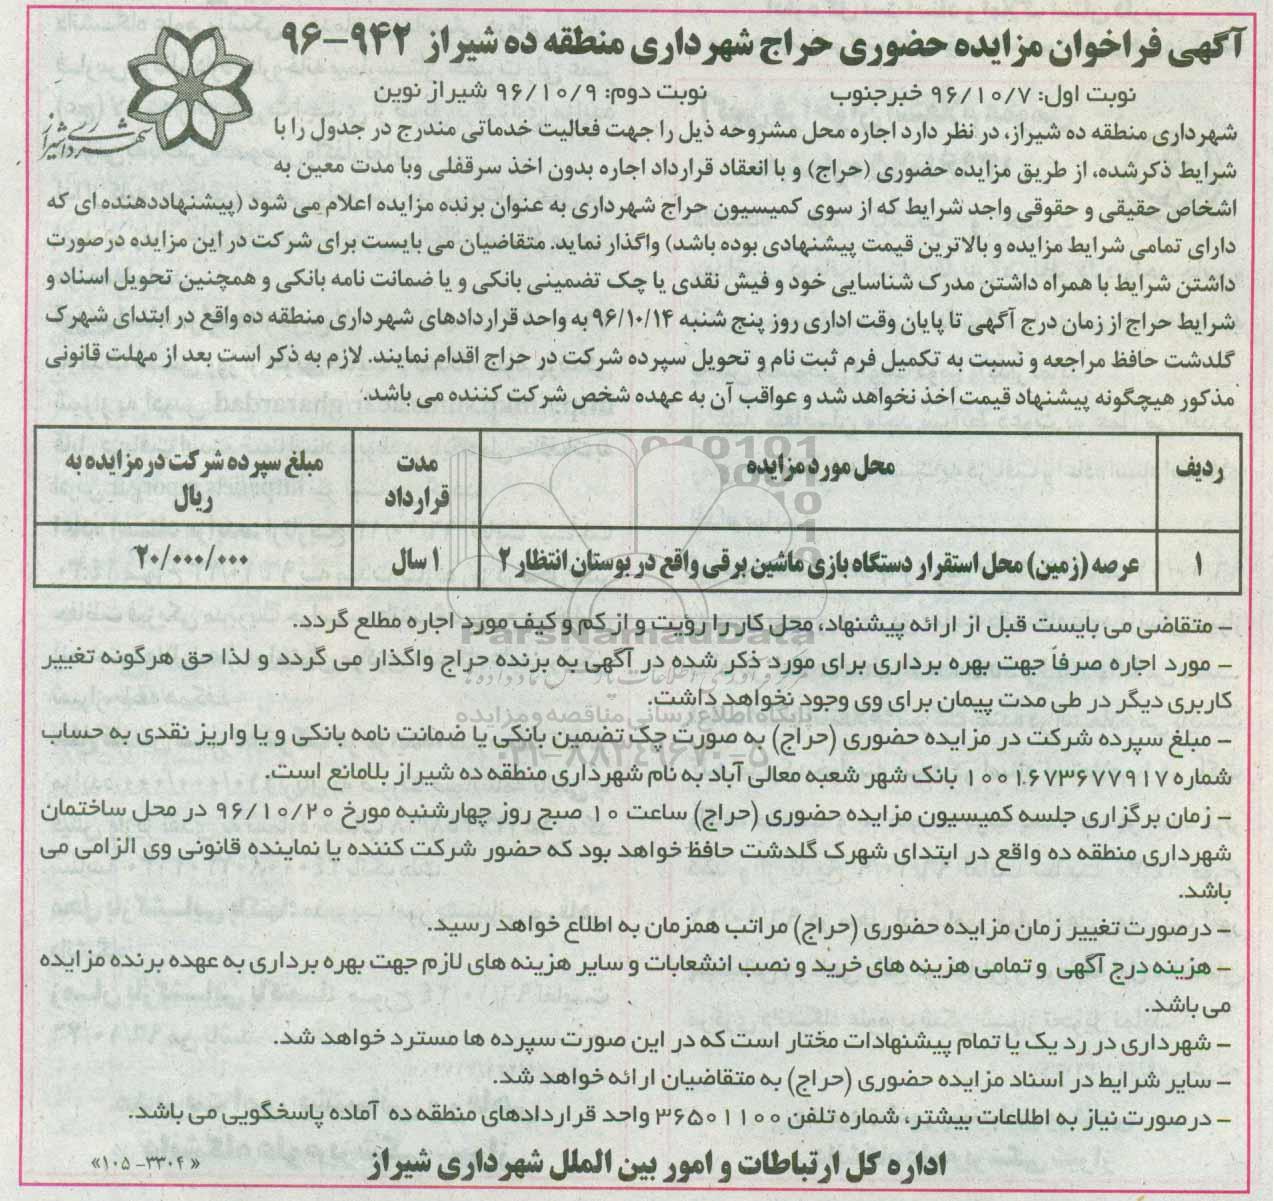 آگهی فراخوان مزایده حضوری حراج شهرداری منطقه ده شیراز ۹۴۲-۹۶
نوبت اول: ۹۶/۱۰/۷ خبرجنوب نوبت دوم: ۹۶/۱۰/۹ شیراز نوین
شهرداری شیراز
شهرداری منطقه ده شیراز، در نظر دارد اجاره محل مشروحه ذیل را جهت فعالیت خدماتی مندرج در جدول را با
شرایط ذکرشده، از طریق مزایده حضوری (حراج) و با انعقاد قرارداد اجاره بدون اخذ سرقفلی وبا مدت معین به
اشخاص حقیقی و حقوقی واجد شرایط که از سوی کمیسیون حراج شهرداری به عنوان برنده مزایده اعلام می شود (پیشنهاددهنده ای که
دارای تمامی شرایط مزایده و بالاترین قیمت پیشنهادی بوده باشد) واگذار نماید. متقاضیان می بایست برای شرکت در این مزایده درصورت
داشتن شرایط با همراه داشتن مدرک شناسایی خود و فیش نقدی یا چک تضمینی بانکی و یا ضمانت نامه بانکی و همچنین تحویل اسناد و
شرایط حراج از زمان درج آگهی تا پایان وقت اداری روز پنج شنبه ۹۶/۱۰/۱۴ به واحد قراردادهای شهرداری منطقه ده واقع در ابتدای شهرک
گلدشت حافظ مراجعه و نسبت به تکمیل فرم ثبت نام و تحویل سپرده شرکت در حراج اقدام نمایند. لازم به ذکر است بعد از مهلت قانونی
مذکور هیچگونه پیشنهاد قیمت اخذ نخواهد شد و عواقب آن به عهده شخص شرکت کننده می باشد.
ردیف محل مورد مزایده مدت قرارداد مبلغ سپرده شرکت در مزایده به ریال
۱ عرصه (زمین) محل استقرار دستگاه بازی ماشین برقی واقع در بوستان انتظار ۲ ۱ سال ۲۰/۰۰۰/۰۰۰
– متقاضی می بایست قبل از ارائه پیشنهاد، محل کار را رؤیت و از کم و کیف مورد اجاره مطلع گردد.
ParsNamadData
– مورد اجاره صرفاً جهت بهره برداری برای مورد ذکر شده در آگهی به برنده حراج واگذار می گردد و لذا حق هرگونه تغییر
کاربری دیگر در طی مدت پیمان برای وی وجود نخواهد داشت.
پایگاه اطلاع رسانی مناقصه و مزایده
– مبلغ سپرده شرکت در مزایده حضوری (حراج) به صورت چک تضمین بانکی یا ضمانت نامه بانکی و یا واریز نقدی به حساب
شماره ۱۰۰۱۰۶۷۳۶۷۷۹۱۷ بانک شهر شعبه معالی آباد به نام شهرداری منطقه ده شیراز بلامانع است.
– زمان برگزاری جلسه کمیسیون مزایده حضوری (حراج) ساعت ۱۰ صبح روز چهارشنبه مورخ ۹۶/۱۰/۲۰ در محل ساختمان
شهرداری منطقه ده واقع در ابتدای شهرک گلدشت حافظ خواهد بود که حضور شرکت کننده یا نماینده قانونی وی الزامی می
باشد.
– درصورت تغییر زمان مزایده حضوری (حراج) مراتب همزمان به اطلاع خواهد رسید.
– هزینه درج آگهی و تمامی هزینه های خرید و نصب انشعابات و سایر هزینه های لازم جهت بهره برداری به عهده برنده مزایده
می باشد.
– شهرداری در رد یک یا تمام پیشنهادات مختار است که در این صورت سپرده ها مسترد خواهد شد.
– سایر شرایط در اسناد مزایده حضوری (حراج) به متقاضیان ارائه خواهد شد.
– درصورت نیاز به اطلاعات بیشتر، شماره تلفن ۳۶۵۰۱۱۰۰ واحد قراردادهای منطقه ده آماده پاسخگویی می باشد.
اداره کل ارتباطات و امور بین الملل شهرداری شیراز «۱۰۵-۳۳۰۴»